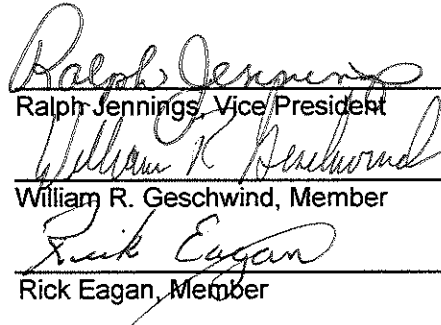 Ralph Jennings
Ralph Jennings, Vice President
William R Geschwind
William R. Geschwind, Member
Rick Eagan
Rick Eagan, Member